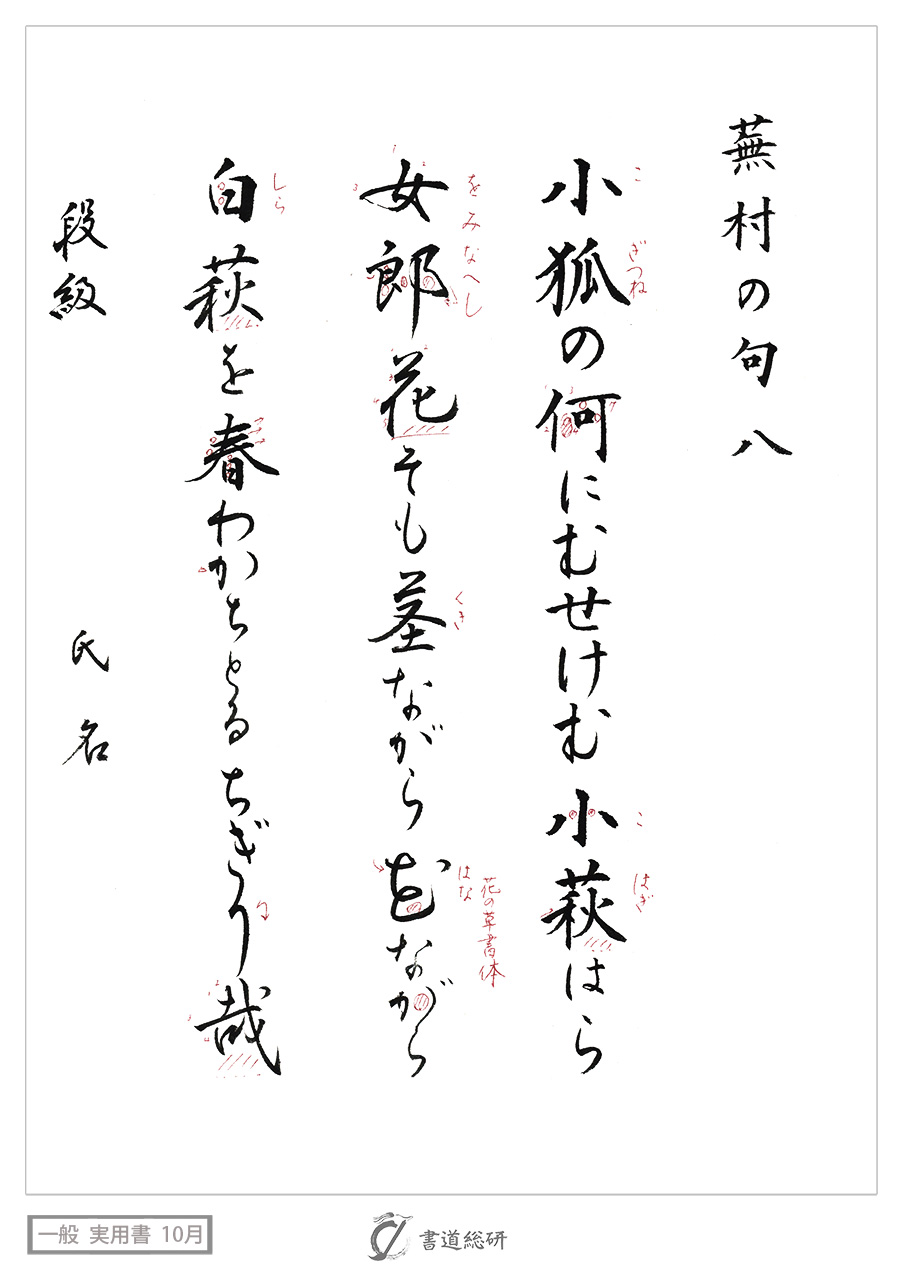 蕪村の句八
こぎつね こはぎ
小狐の何にむせけむ小萩はら
をみなへし くき はな
花の草書体
女郎花そも茎ながら花ながら
しら
白萩を春わかちとるちぎり哉
段級 氏名
一般 実用書 10月
書道総研